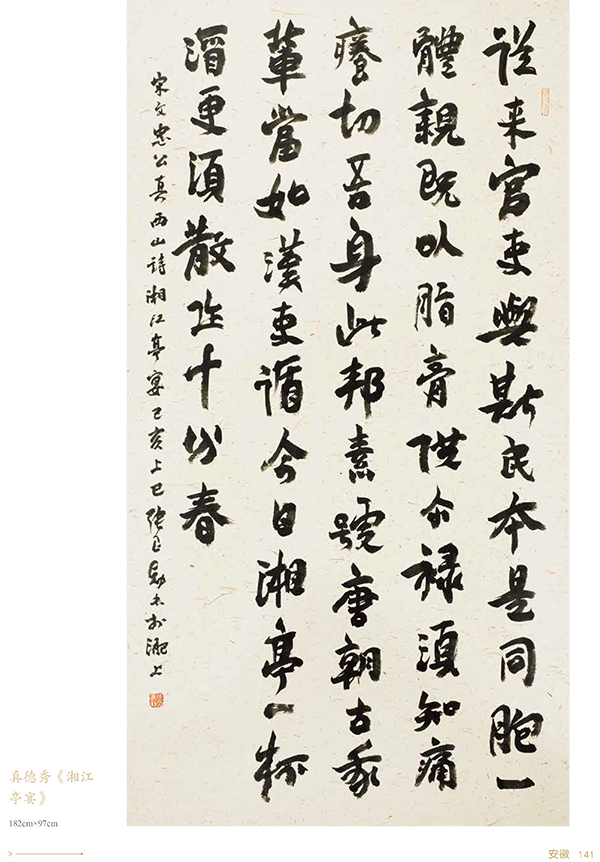 從来官吏與斯民本是同胞一
體親既以脂膏供尔祿須知痛
癢切吾身此邦素號唐朝古我
輩當如漢吏循今日湘亭一杯
酒更須散作十分春
宋文忠公真西山詩湘江亭宴己亥上巳張良勛書於淝上
真德秀《湘江
亭宴》
182cm×97cm
安徽 141